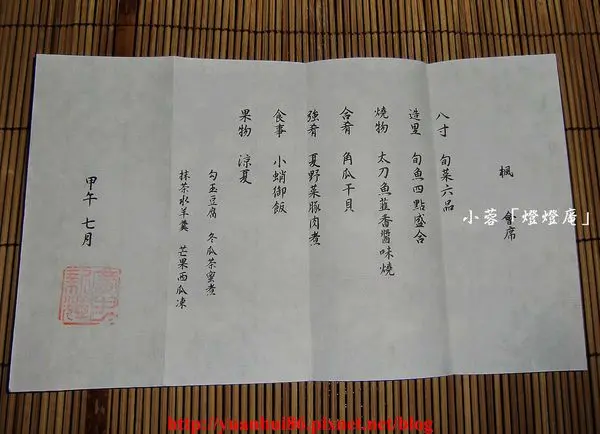 楓 會席
八寸 旬菜六品
造里 旬魚四點盛合
燒物 太刀魚韮香醬味燒
合肴 角瓜干貝
強肴 夏野菜豚肉煮
食事 小蛸御飯
果物 涼夏
勾玉豆腐 冬瓜茶蜜煮
抹茶水羊羹 芒果西瓜凍
甲午 七月
小蓉「燈燈庵」
http://yuanhui86.pixnet.net/blog